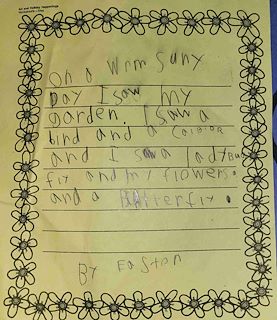 On a Wrm Suny
Day I Saw my
garden. I Saw a
bird and a
and I Saw a lady Bug
fly and my flowers.
and a Butterfly.
By Easton